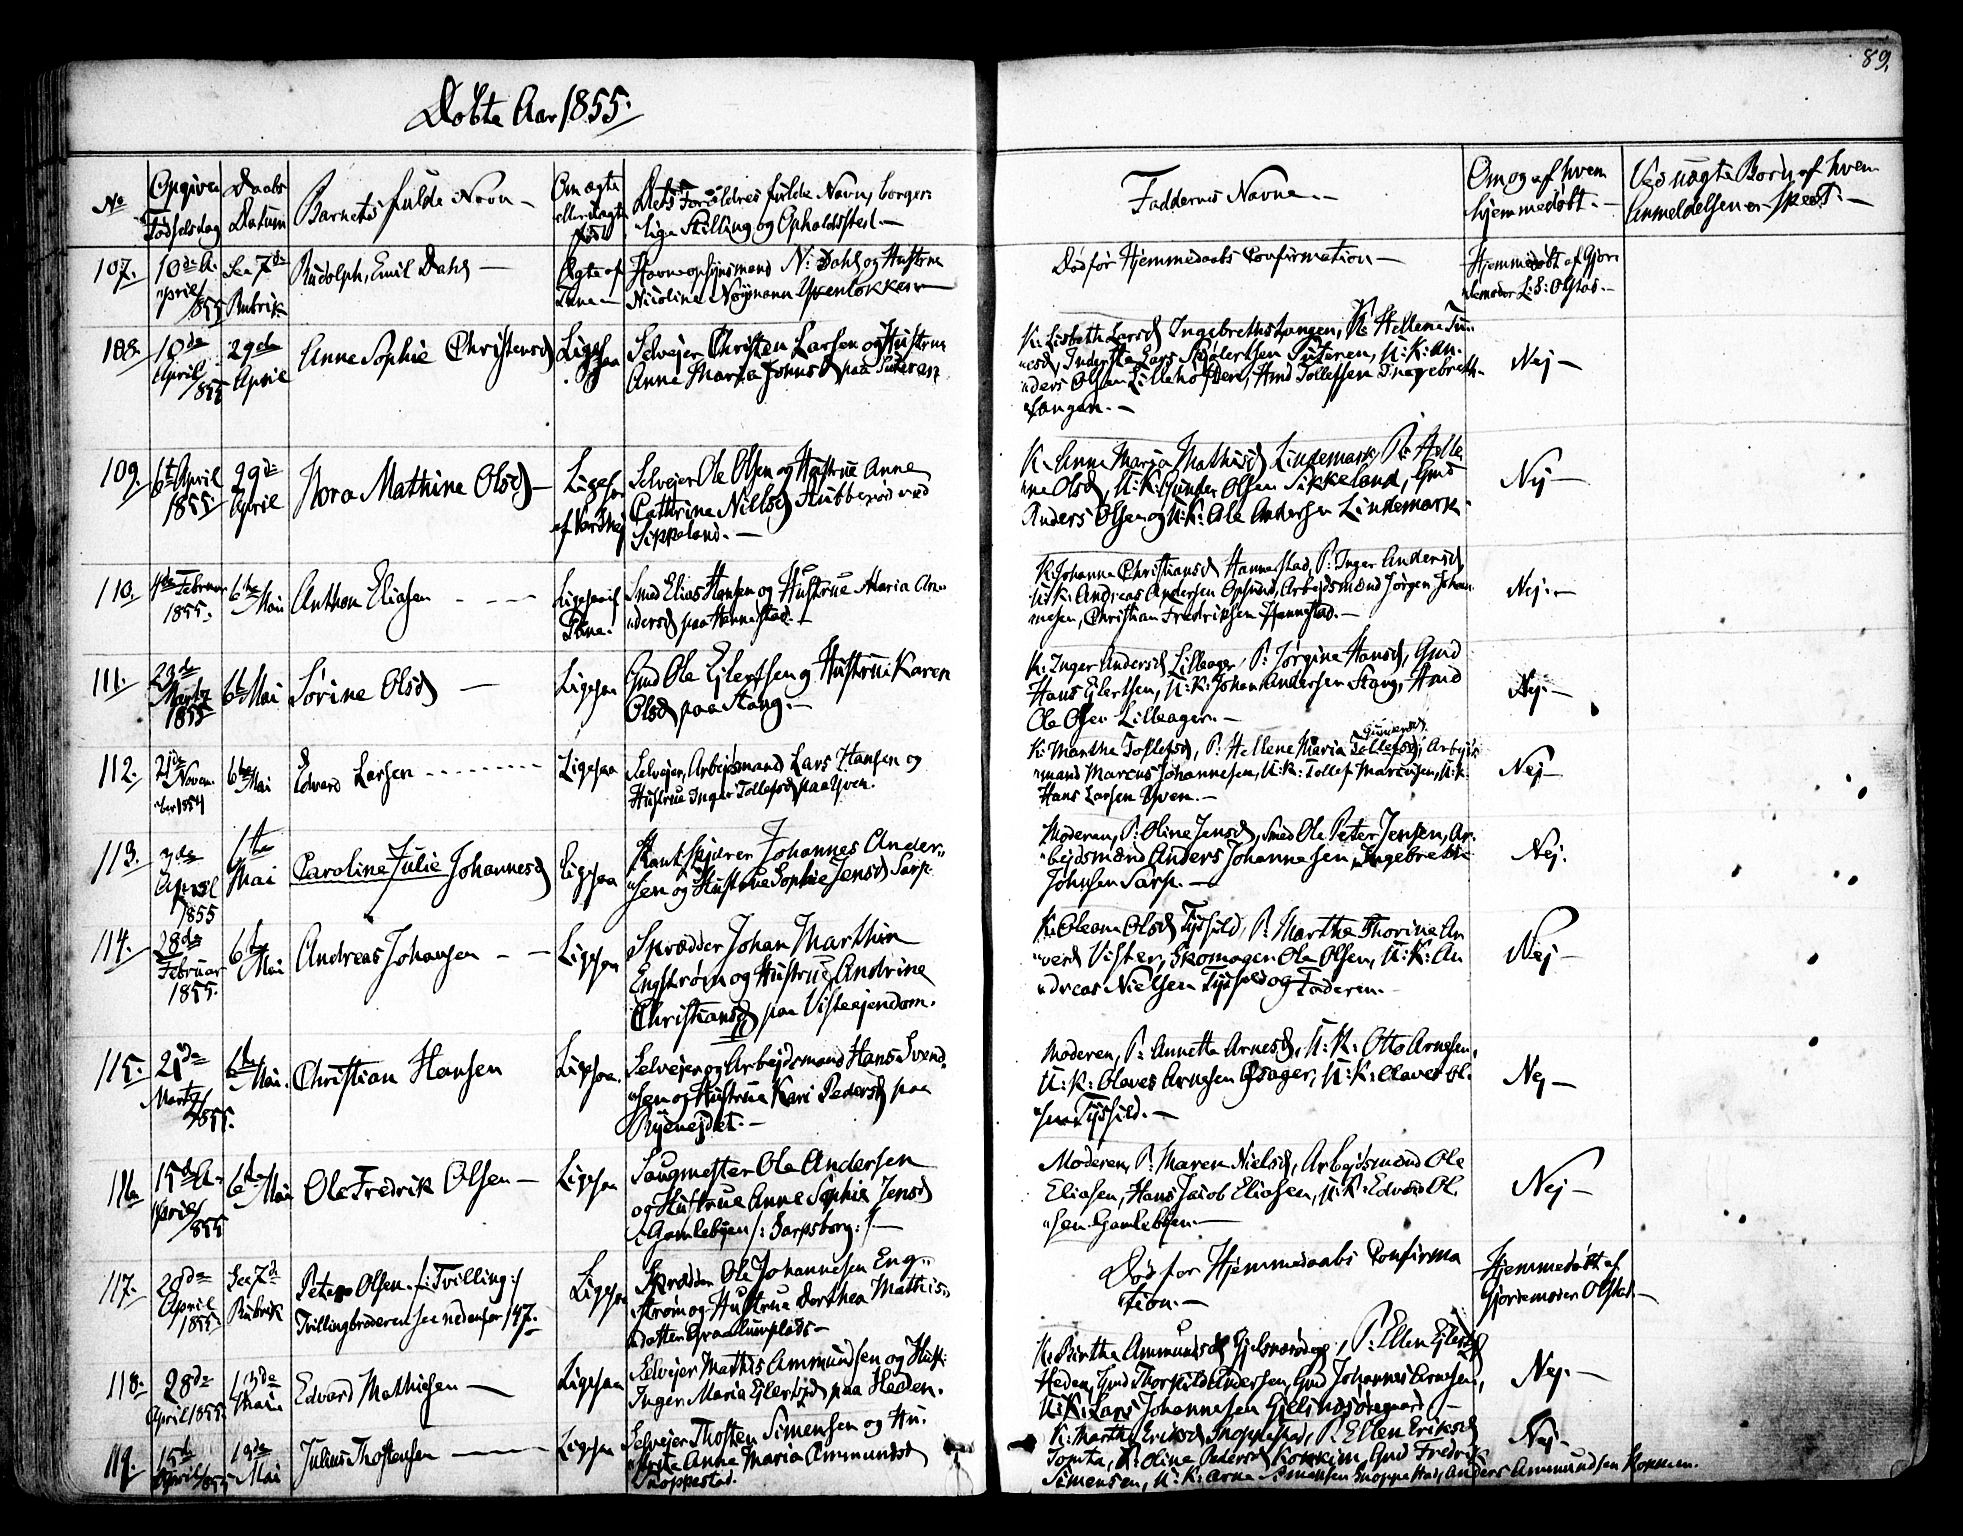 89.
Døbte Aar 1855.
No
Opgiven Fødselsdag
Daabs Datum
Barnets fulde Navn
Om ægte eller uægte født
Dets Forældres fulde Navn, borger-
lige Stilling og Opholdssted
Faddernes Navne
Om og af hvem
hjemmedøbt.
Ved uægte Børn af hvem
Anmeldelsen er skeet.
107. 10de April 1855 See 7de Rubrik Rudolph, Emil Dahl Ægte af
Havneopsynsmand N: Dahl og Hustrue
Nicoline Neumann
Død før Hjemmedaabs Confirmation
Hjemmedøbt af Gjor-
demoder L: S: Olstad.
108. 10de April 1855 29de April Anne Sophie Christensd Ligesaa
Selvejer Christen Larsen og Hustrue
Anne Maria Johnsd paa
K: Lisbeth Larsd Ingebrethslangen, P: Hellene
Anders Olsen Tollefsen Ingebreth-
langen.
Nej
109. 6te April 1855 29de April Nora Mathine Olsd Ligesaa
Selvejer Ole Olsen og Hustrue Anne
Cathrine Nielsd Hubberød ved
Sikkeland.
K: Anne Maria Mathisd Lindemark P: Helle-
ne Olsd, U: K: Gunder Olsen Sikkeland, Gmd
Anders Olsen og U: K: Ole Andersen Lindemark.
Nej
110. 4de Februar 1855. 6te Mai Anthon Eliasen Ligesaa
Smed Elias Hansen og Hustrue Maria An-
dersd paa Hannestad.
K: Johanne Christiansd Hannestad, P: Inger Andersd,
U: K: Andreas Andersen Opsund, Arbejdsmænd Jørgen Johan-
nesen, Christian Fredriksen Hannestad.
Nej.
111. 23de Martz 1855 6te Mai Sørine Olsd Ligesaa
Gmd Ole Ejlertsen og Hustrue Karen
Olsd paa Stang.
K: Inger Andersd Lilleager, P: Jørgine Hansd, Gmd
Hans Ejlertsen, U: K: Johan Andersen Stang, Hmd
Ole Olsen Lilleager.
Nej.
112. 21de November 1854 6te Mai Edvard Larsen Ligesaa
Selvejer, Arbejdsmand Lars Hansen og
Hustrue Inger Tollefsd paa Yven.
Gundersd
K: Marthe Tollefsd, P: Hellene Maria Tollefsd, Arbejds-
mand Marcus Johannesen, U: K: Tollef Marcusen, U: K:
Hans Larsen Yven.
Nej
113. 3de April 1855 1te Mai Caroline Julie Johannesd Ligesaa
Johannes Ander-
sen og Hustrue Sophie Jensd Sarp.
Moderen, P: Oline Jensd, Smed Ole Peter Jensen, Ar-
bejdsmænd Anders Johannesen, Ingebreth
Johnsen Sarp.
Nej.
114. 28de Februar 1855. 6te Mai Andreas Johansen Ligesaa
Skrædder Johan Marthin
Engstrøm og Hustrue Andrine
Christiansd paa Visterejendom.
K: Oleane Olsd Tyshild, P: Marthe Thorine An-
Vister, Skomager Ole Olsen, U: K: An-
dreas Nielsen Tyshild og Faderen.
Nej
115. 21de Martz 1855. 6te Mai. Christian Hansen Ligesaa.
Selvejer og Arbejdsmand Hans Svend-
sen og Hustrue Kari Pedersd paa
Ryeneidet.
Moderen, P: Annette Arnesd, U: K: Otto Arnesen,
U: K: Olaves Arnesen Opsager, U: K: Olaves Ol-
sen Tyshild.
Nej
116. 15de April 1855 6te Mai Ole Fredrik Olsen Ligesaa
Saugmester Ole Andersen
og Hustrue Anne Sophie Jensd
Gamlebyen /: Sarpsborg :/
Moderen, P: Maren Nielsd, Arbejdsmænd Ole
Eliasen, Hans Jacob Eliasen, U: K: Edvard Ol-
sen Gamlebyen.
Nej
117. 20de April 1855 See 7de Rubrik Peter Olsen /: Tvilling :/
Tvillingbroderen see nedenfor 147. Ligesaa
Skrædder Ole Johannesen Eng-
strøm og Hustrue Dorthea Mathis-
datter
Død før Hjemmedaabs Confirma-
tion.
Hjemmedøbt af
Gjordemoder Olstad.
118. 28de April 1855 13de Mai Edvard Mathisen Ligesaa
Selvejer Mathis Ammundsen og Hust:
Inger Maria Ejlertsd paa Heden.
K: Birthe Ammundsd P: Ellen Ejlertsd
Heden, Gmd Thorkild Andersen, Gmd Johannes Arnesen,
U: K: Lars Johannesen
Nej.
119. 15de April 1855 13de Mai Julius Thostensen Ligesaa
Selvejer Thosten Simensen og Hu-
strue Anne Maria Ammundsd
Snoppestad.
K: Marthe Eriksd Snoppestad, P: Ellen Eriksd
Tomta, P: Oline Pedersd Gmd Fredrik
Simensen, U: K: Arne Simensen Snoppestad, Anders Ammundsen
Nej